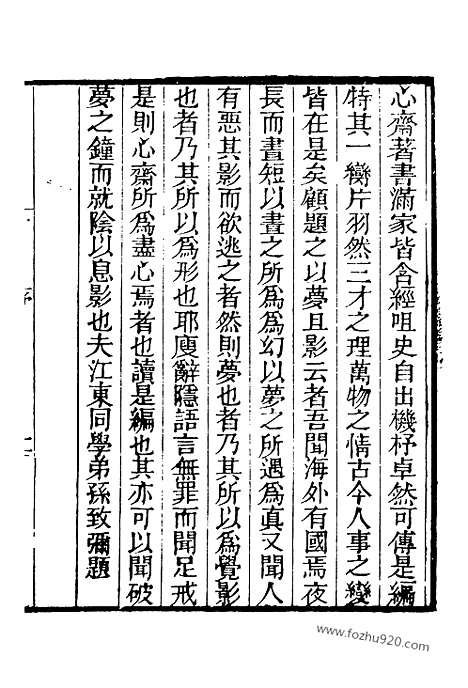 心齋著書滿家皆含經咀史自出機杼卓然可傳是編
特其一臠片羽然三才之理萬物之情古今人事之變
皆在是矣顧題之以夢且影云者吾聞海外有國焉夜
長而晝短以晝之所為為幻以夢之所遇為真又聞人
有惡其影而欲逃之者然則夢也者乃其所以為覺影
也者乃其所以為形也耶廋辭隱語言無罪而聞足戒
是則心齋所為盡心焉者也讀是編也其亦可以聞破
夢之鐘而就陰以息影也夫江東同學弟孫致彌題
序
二
www.fozhu920.com